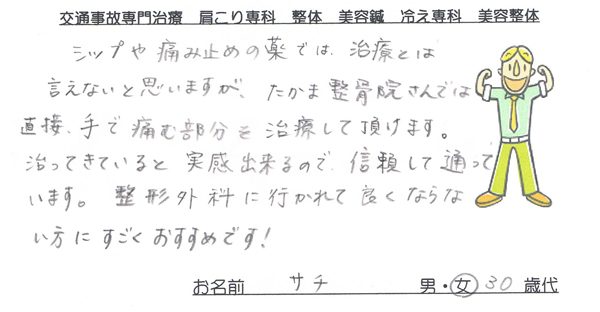 交通事故専門治療　肩こり専科　整体　美容鍼　冷え専科　美容整体
シップや痛み止めの薬では、治療とは
言えないと思いますが、たかま整骨院さんでは
直接、手で痛む部分を治療して頂けます。
治ってきていると実感出来るので、信頼して通って
います。整形外科に行かれて良くならな
い方にすごくおすすめです!
お名前　サチ　男・女　30歳代